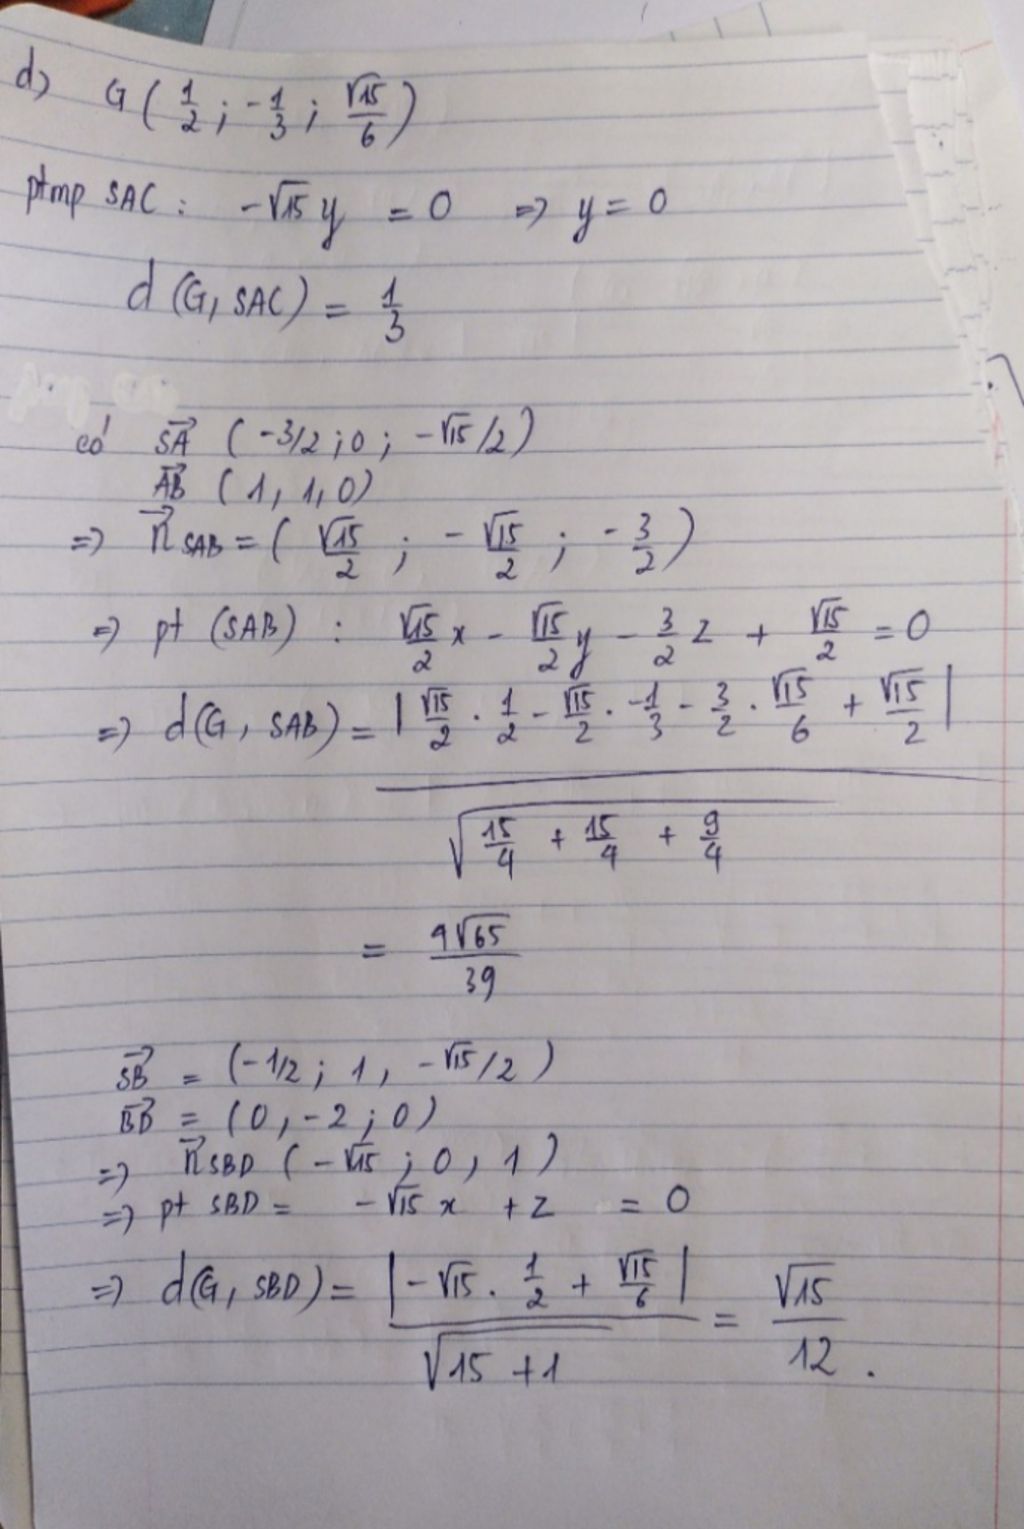 d) G ( 1/2 ; -1/3 ; √15/6 )
ptmp SAC : -√15 y = 0 => y = 0
d (G, SAC) = 1/3
có SA⃗ ( -3/2 ; 0 ; -√15/2 )
AB⃗ ( 1, 1, 0)
=> n⃗ SAB = ( √15/2 ; - √15/2 ; - 3/2 )
=> pt (SAB) : √15/2 x - √15/2 y - 3/2 z + √15/2 = 0
=> d(G, SAB) = | √15/2 . 1/2 - √15/2 . -1/3 - 3/2 . √15/6 + √15/2 |
√ 15/4 + 15/4 + 9/4
= 4√65 / 39
SB⃗ = (-1/2 ; 1, -√15/2 )
BD⃗ = (0, -2 ; 0)
=> n⃗ SBD ( -√15 ; 0, 1 )
=> pt SBD = -√15 x + z = 0
=> d(G, SBD) = | -√15 . 1/2 + √15/6 | / √15 + 1 = √15 / 12 .